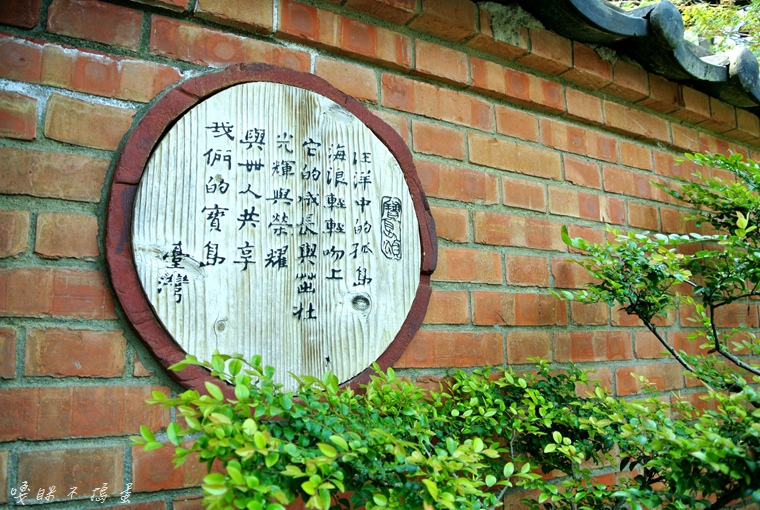 寶島頌
汪洋中的孤島
海浪輕輕吻上
它的成長與茁壯
光輝與榮耀
與世人共享
我們的寶島
臺灣
嘎眯不搗蛋